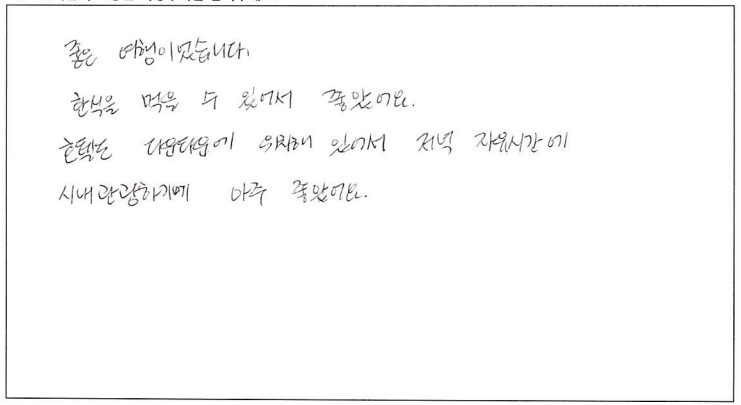 좋은 여행이었습니다.
한식을 먹을 수 있어서 좋았어요.
호텔도 다운타운에 위치해 있어서 저녁 자유시간에
시내관광하기에 아주 좋았어요.